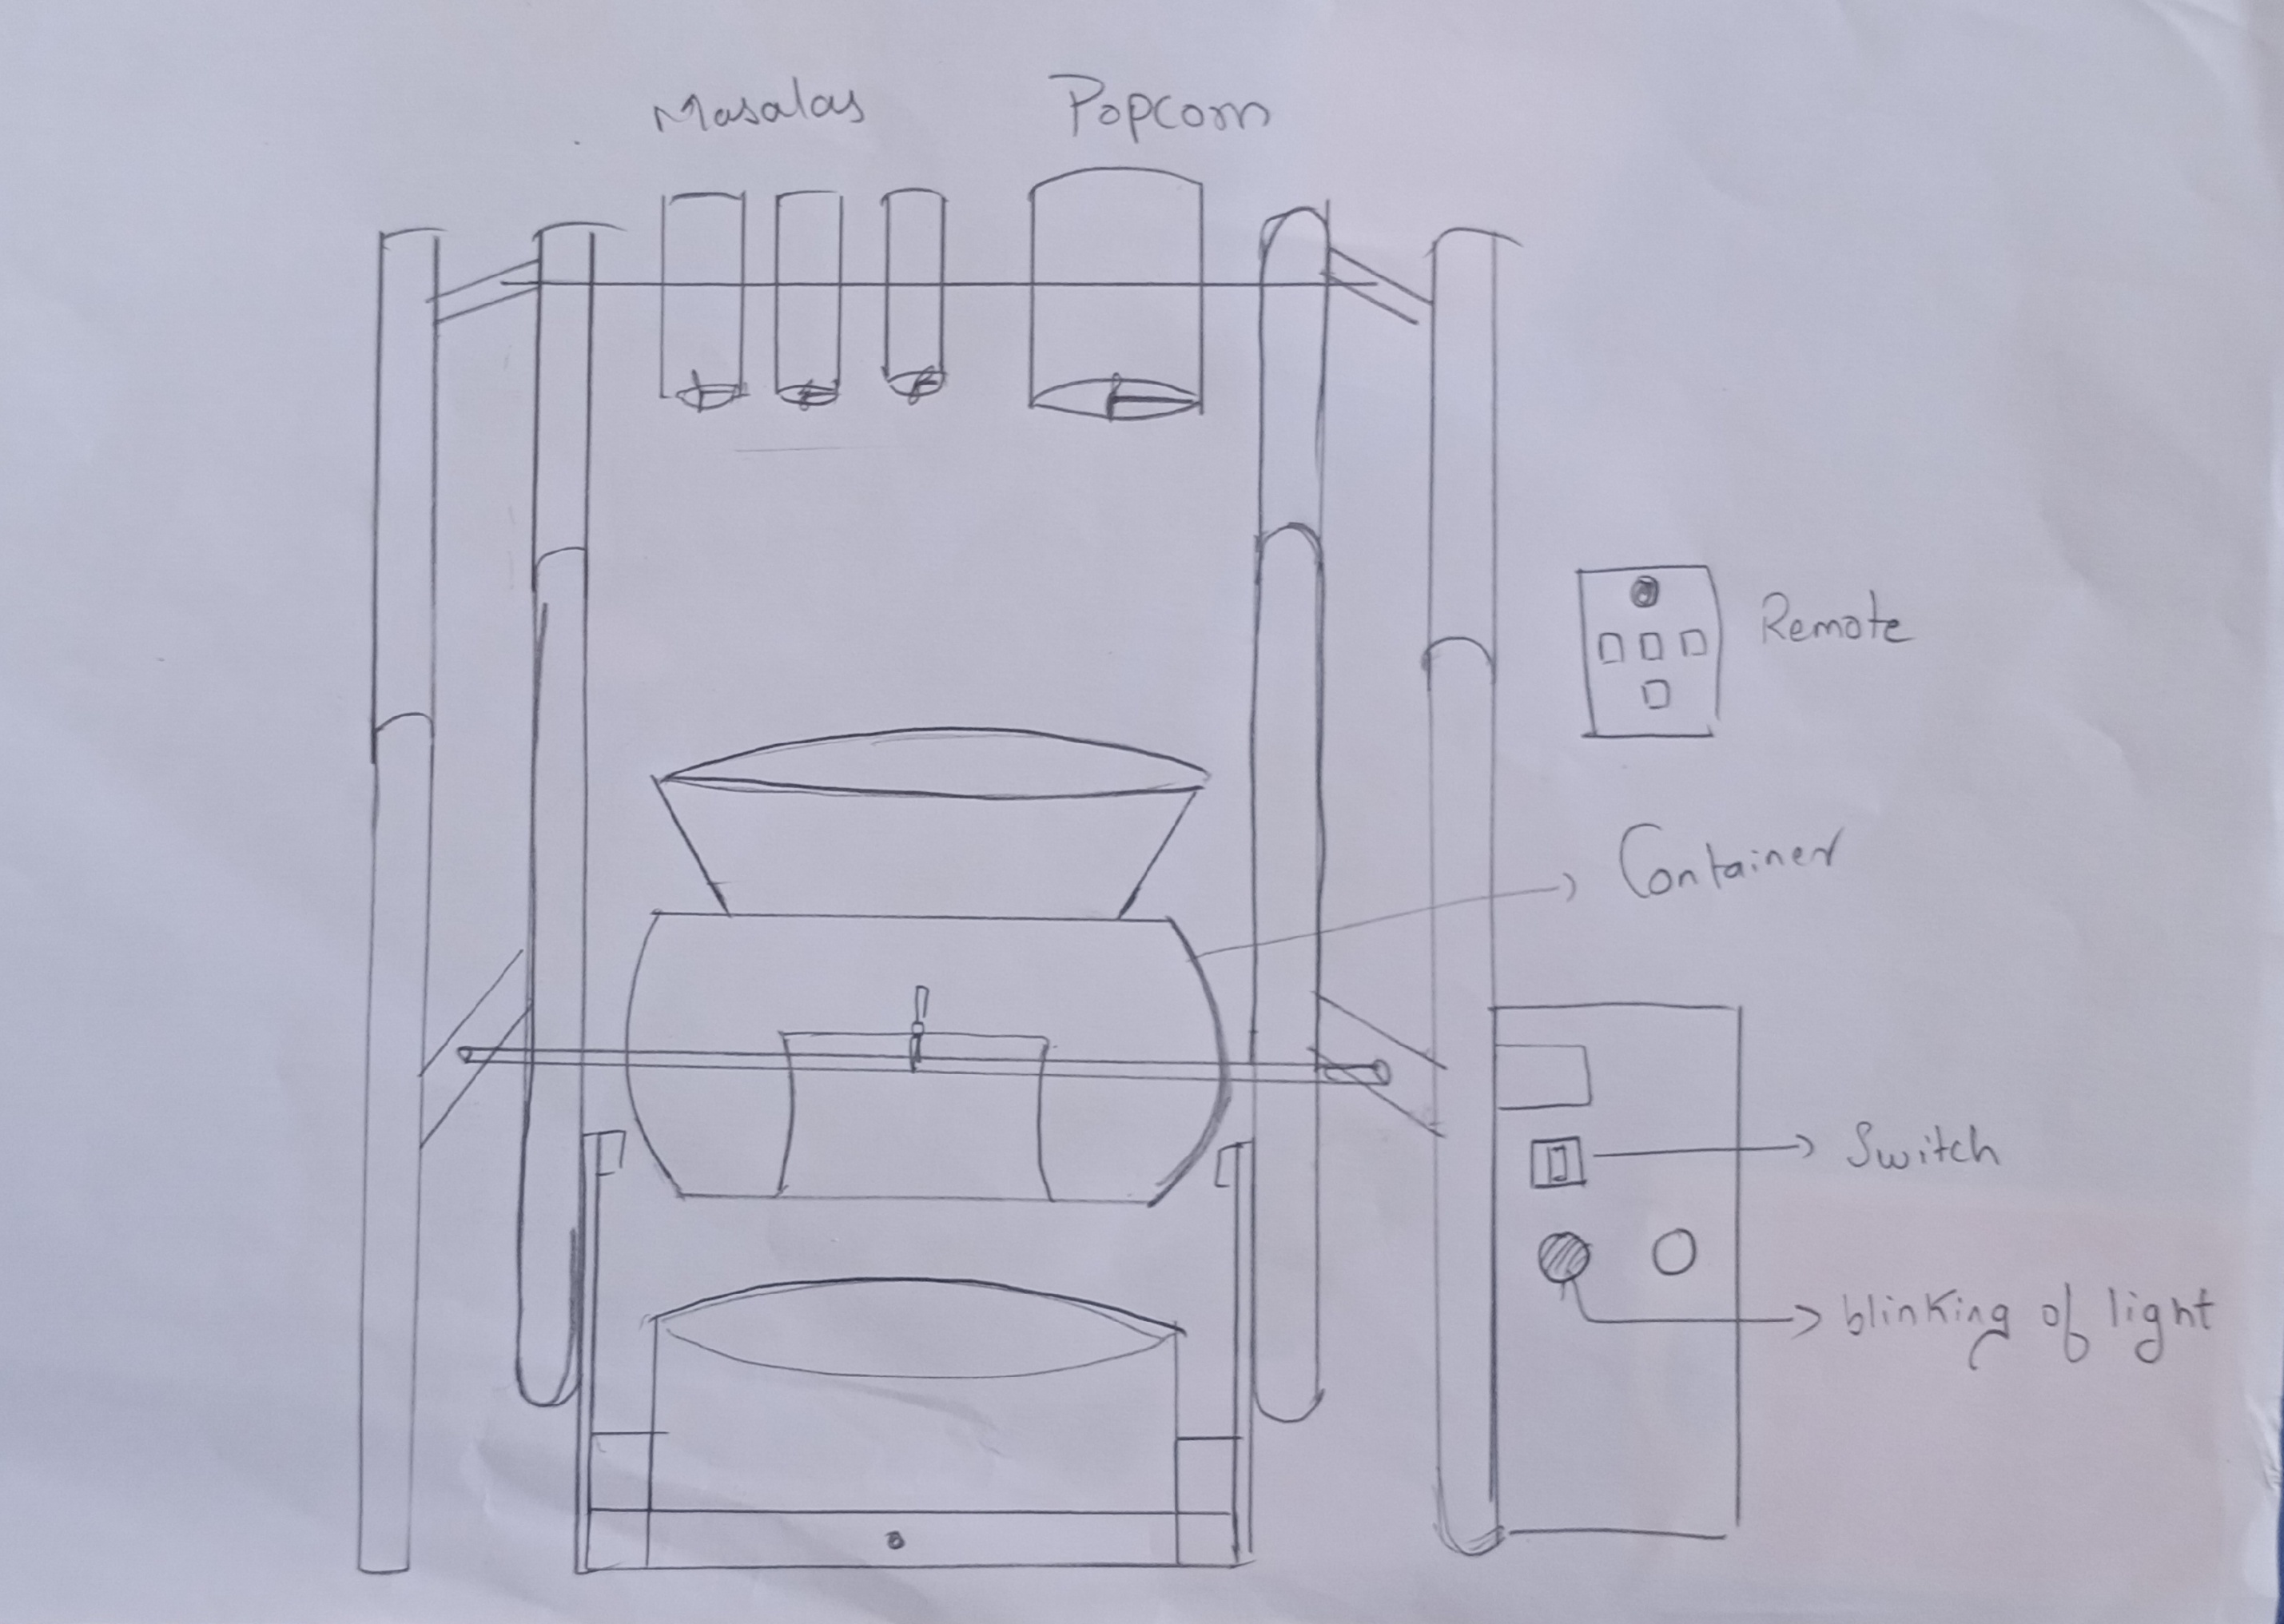 Masalas
Popcorn
Remote
Container
Switch
blinking of light